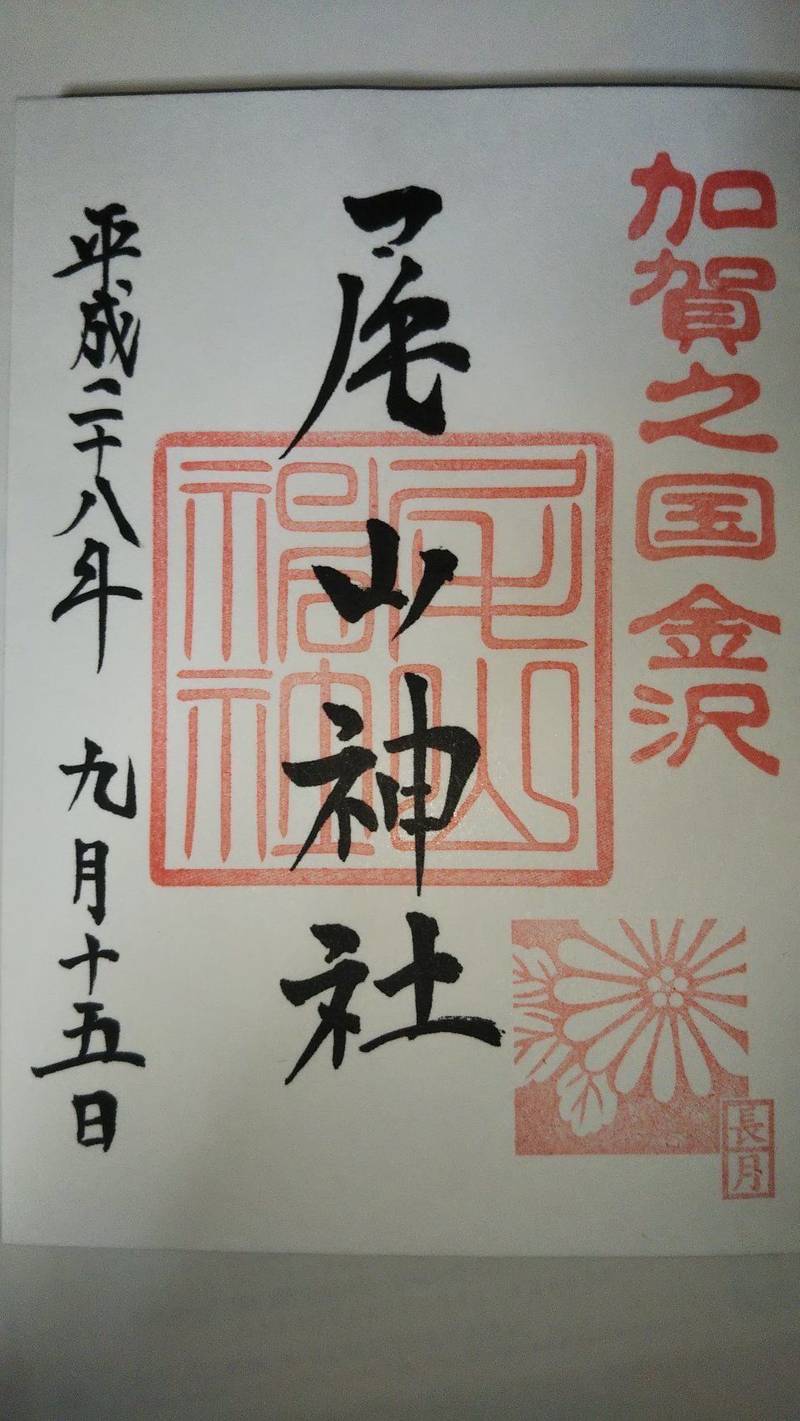 加賀之国金沢
長月
尾山神社
尾山神社
平成二十八年 九月十五日